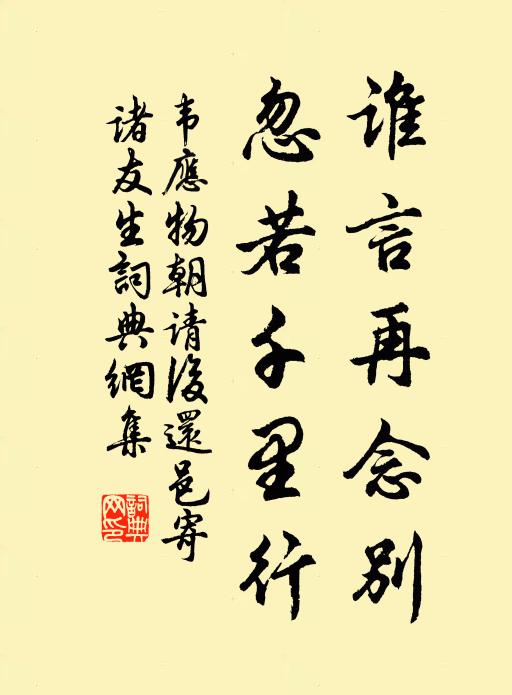 谁言再念别
忽若千里行
韦應物朝请後還邑寄
诸友生詞典網集
詞典网印